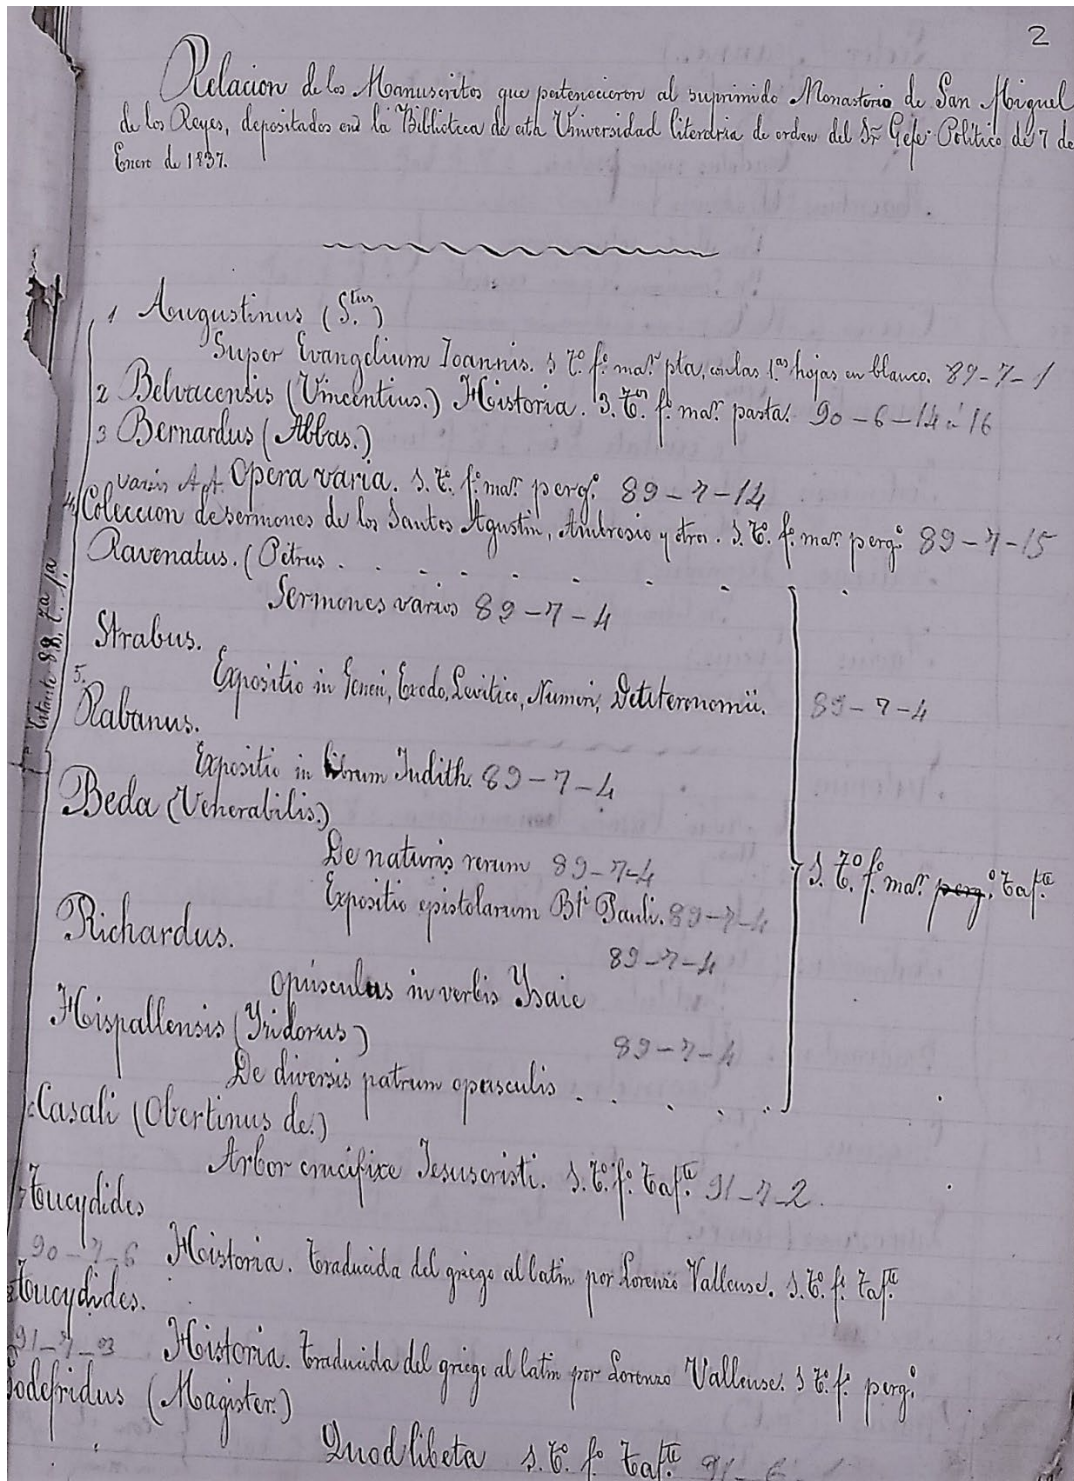 2
Relacion de los Manuscritos que pertenecieron al suprimido Monasterio de San Miguel
de los Reyes, depositados en la Biblioteca de esta Universidad literaria de orden del Sr. Gefe Politico de 7 de
Enero de 1837.
1 Augustinus (S.tus)
Super Evangelium Ioannis. 1 t.o f.o mar. pta, con las 1.as hojas en blanco. 89-7-1
2 Belvacensis (Vincentius.) Historia. 3. t.os f.o mar. pasta. 90-6-14 á 16
3 Bernardus (Abbas.)
Opera varia. 1. t. f.o mar. perg.o 89-7-14
4 varios A.A. Coleccion de sermones de los Santos Agustin, Ambrosio y otros. 1. t.o f.o mar. perg.o 89-7-15
Estante 88. 7a 1a
Ravenatus. (Petrus . . . . . . . . .
Sermones varios 89-7-4
Strabus.
Expositio in Genesi, Exodo, Levitico, Numeri, Detiteronomii. 89-7-4
5. Rabanus.
Expositio in librum Judith. 89-7-4
Beda (Venerabilis.)
De naturis rerum 89-7-4
1. t.o f.o mar. perg.o taf.te
Expositio epistolarum Bti Pauli. 89-7-4
Richardus.
89-7-4
opusculus in verbis Ysaie
Hispallensis (Ysidorus) 89-7-4
De diversis patrum opusculis . . . . .
Casali (Obertinus de.)
Arbor crucifixe Jesuscristi. 1. t.o f.o taf.te 91-7-2.
7 Tucydides
90-7-6 Historia. traducida del griego al latin por Lorenzo Vallense. 1. t.o f.o taf.te
8 Tucydides.
91-7-3 Historia. traducida del griego al latin por Lorenzo Vallense. 1 t.o f.o perg.o
odefridus (Magister.)
Quodlibeta 1. t.o f.o taf.te 91-6-